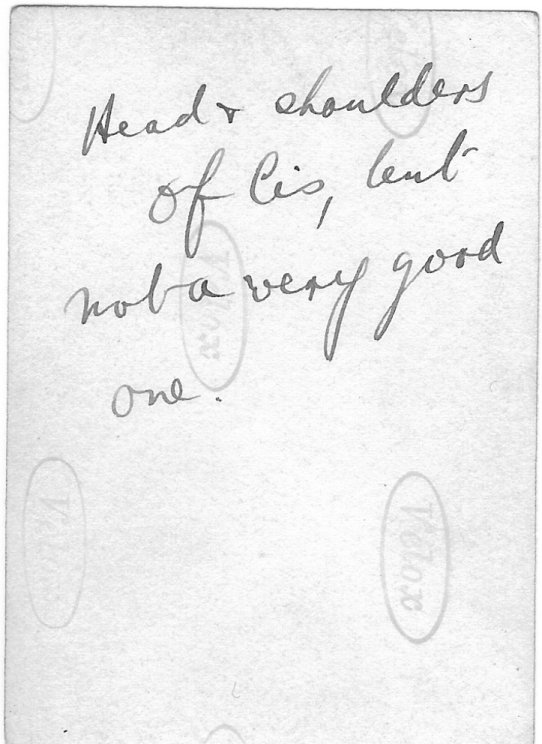 Head & shoulders
of Cis, but
not a very good
one.
Velox
Velox
Velox